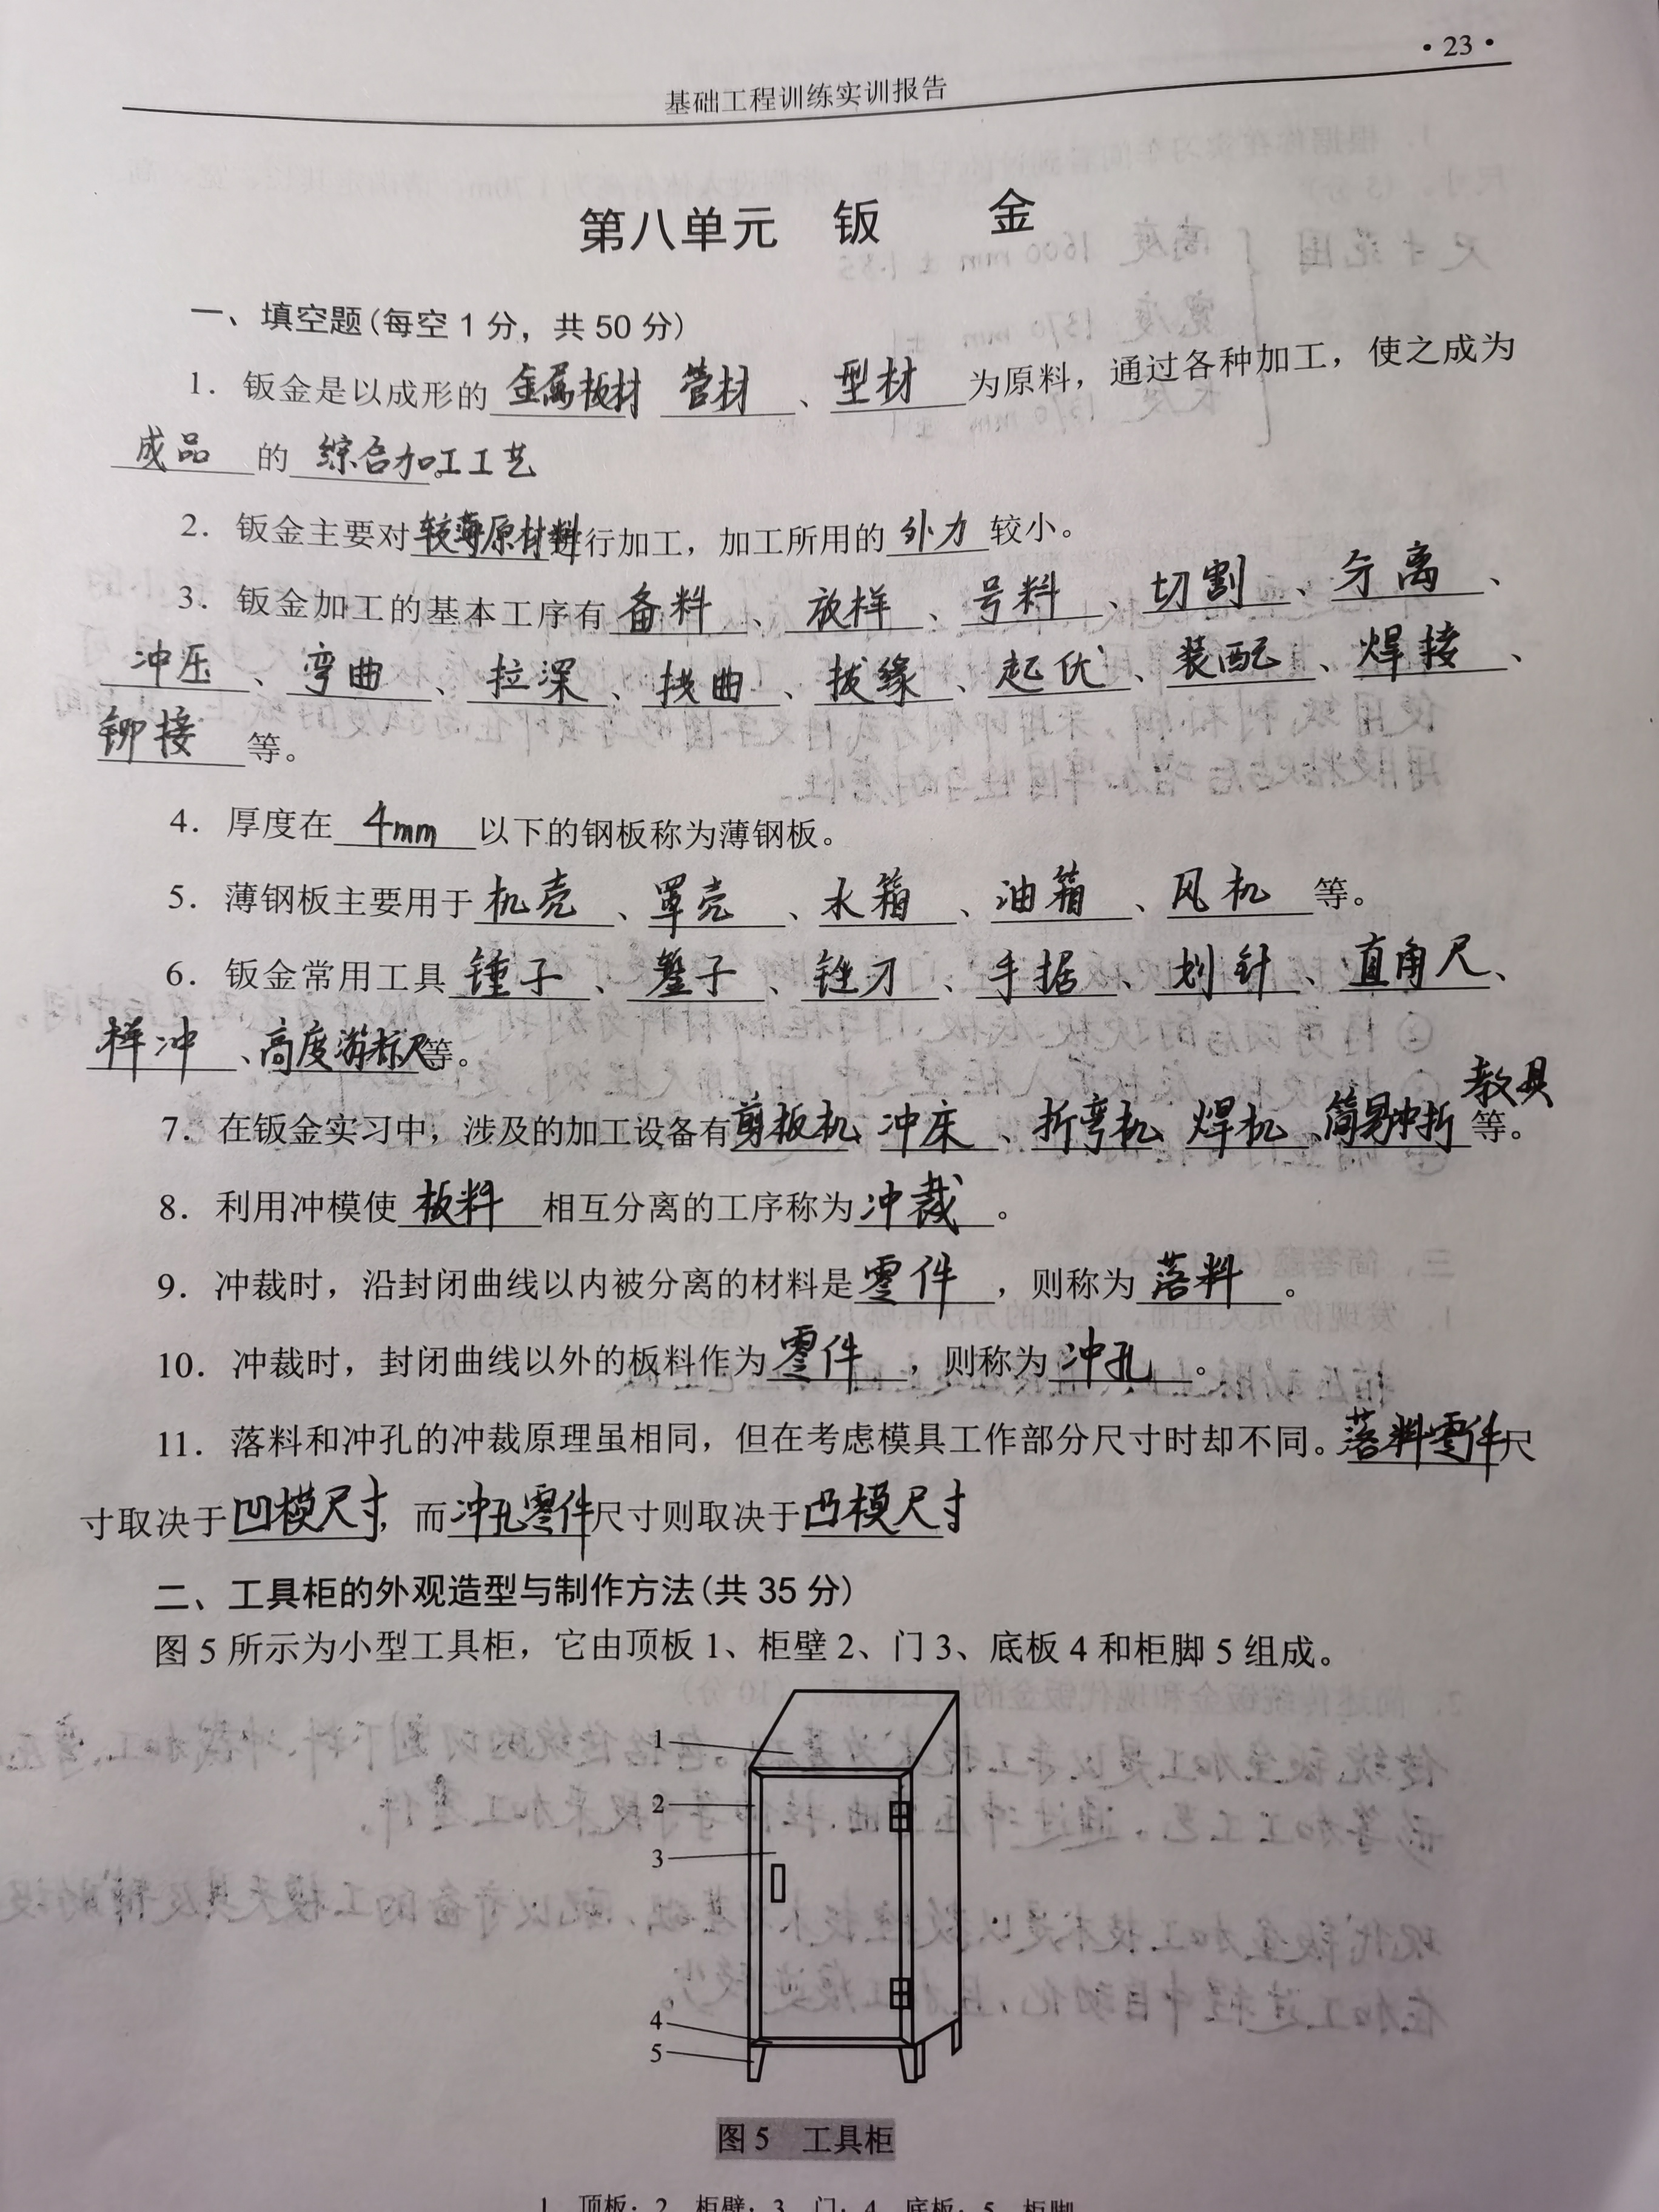 ·23·
基础工程训练实训报告
第八单元 钣 金
一、填空题(每空 1 分，共 50 分)
1. 钣金是以成形的 金属板材 管材 、型材 为原料，通过各种加工，使之成为
成品 的 综合加工工艺。
2. 钣金主要对较薄原材料进行加工，加工所用的 外力 较小。
3. 钣金加工的基本工序有 备料 、放样 、号料 、切割 、分离 、
冲压 、弯曲 、拉深 、扰曲 、拔缘 、起伏 、装配 、焊接 、
铆接 等。
4. 厚度在 4mm 以下的钢板称为薄钢板。
5. 薄钢板主要用于 机壳 、罩壳 、水箱 、油箱 、风机 等。
6. 钣金常用工具 锤子 、錾子 、锉刀 、手据 、划针 、直角尺、
样冲 、高度游标尺等。
教具
7. 在钣金实习中，涉及的加工设备有剪板机、冲床 、折弯机 焊机 、简易冲折 等。
8. 利用冲模使 板料 相互分离的工序称为 冲裁 。
9. 冲裁时，沿封闭曲线以内被分离的材料是 零件 ，则称为 落料 。
10. 冲裁时，封闭曲线以外的板料作为 零件 ，则称为 冲孔 。
11. 落料和冲孔的冲裁原理虽相同，但在考虑模具工作部分尺寸时却不同。落料零件尺
寸取决于凹模尺寸，而冲孔零件尺寸则取决于凸模尺寸
二、工具柜的外观造型与制作方法(共 35 分)
图 5 所示为小型工具柜，它由顶板 1、柜壁 2、门 3、底板 4 和柜脚 5 组成。
1
2
3
4
5
图 5 工具柜
1 顶板；2 柜壁；3 门；4 底板；5 柜脚